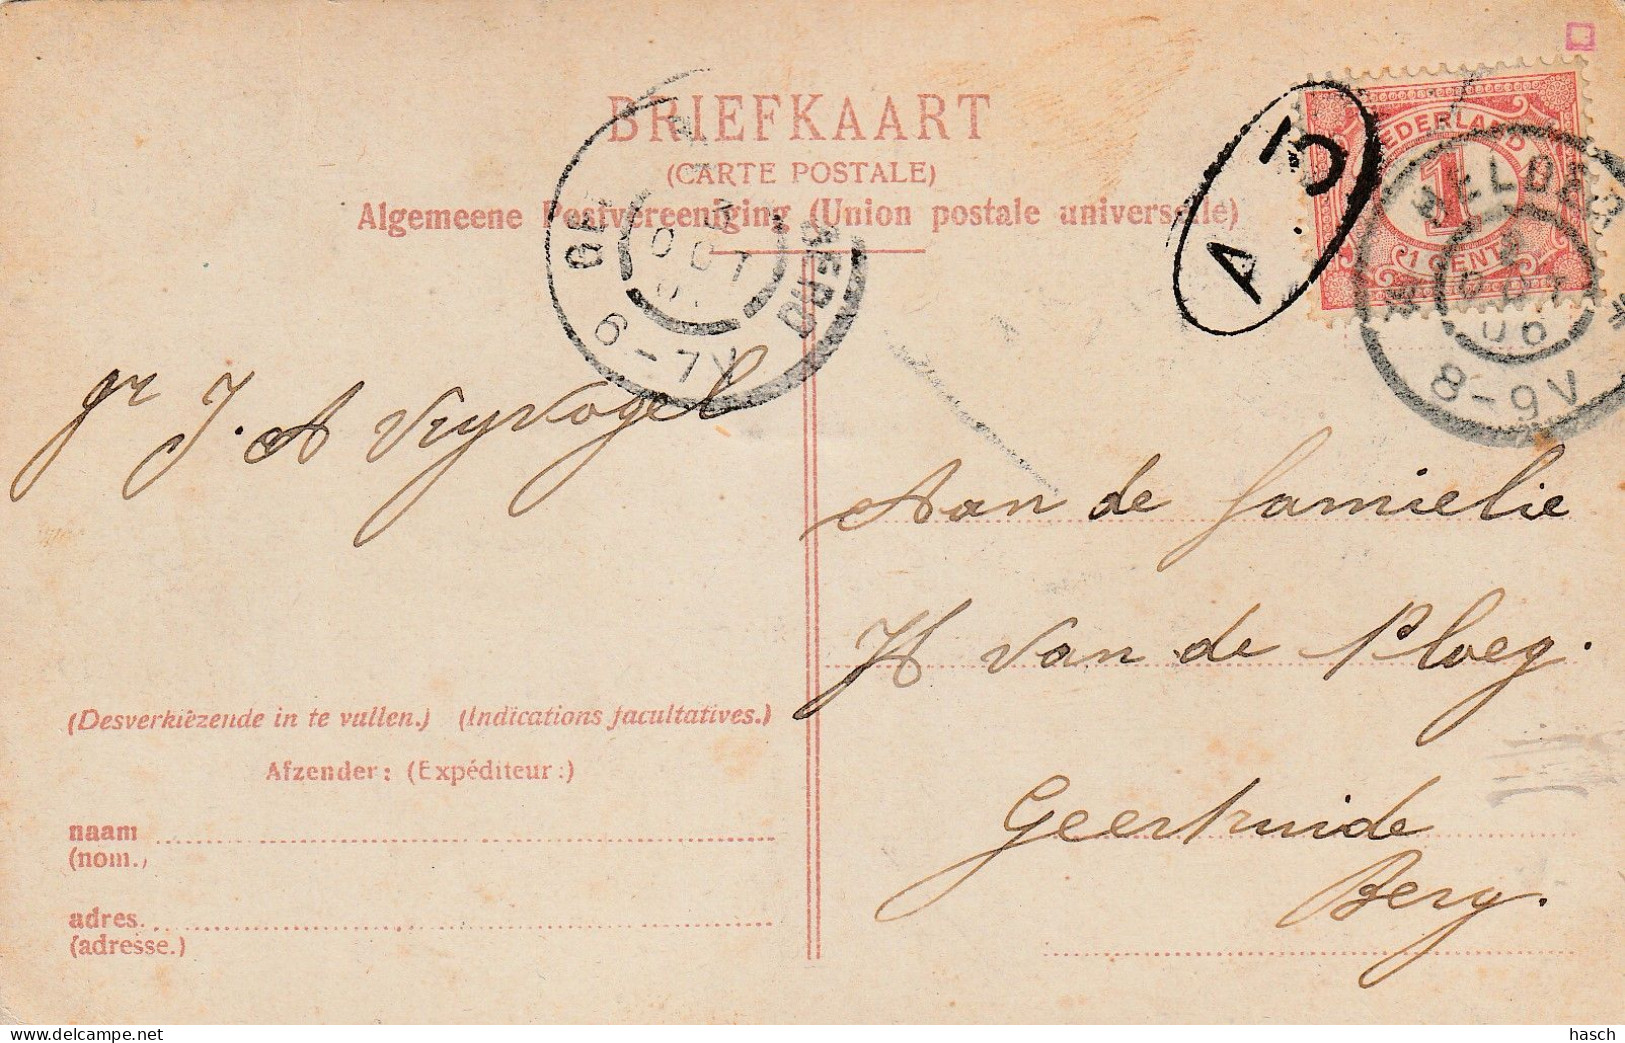 BRIEFKAART
(CARTE POSTALE)
Algemeene Postvereeniging (Union postale universelle)
NEDERLAND
1
1 CENT
A.D
HELDER
2
OCT
06
8-9V
BERG
OCT
6-7V
gr J. A Vryvogel
Aan de famielie
H van de Ploeg.
Geertruide
Berg.
(Desverkiezende in te vullen.) (Indications facultatives.)
Afzender: (Expéditeur:)
naam
(nom.)
adres.
(adresse.)
hasch